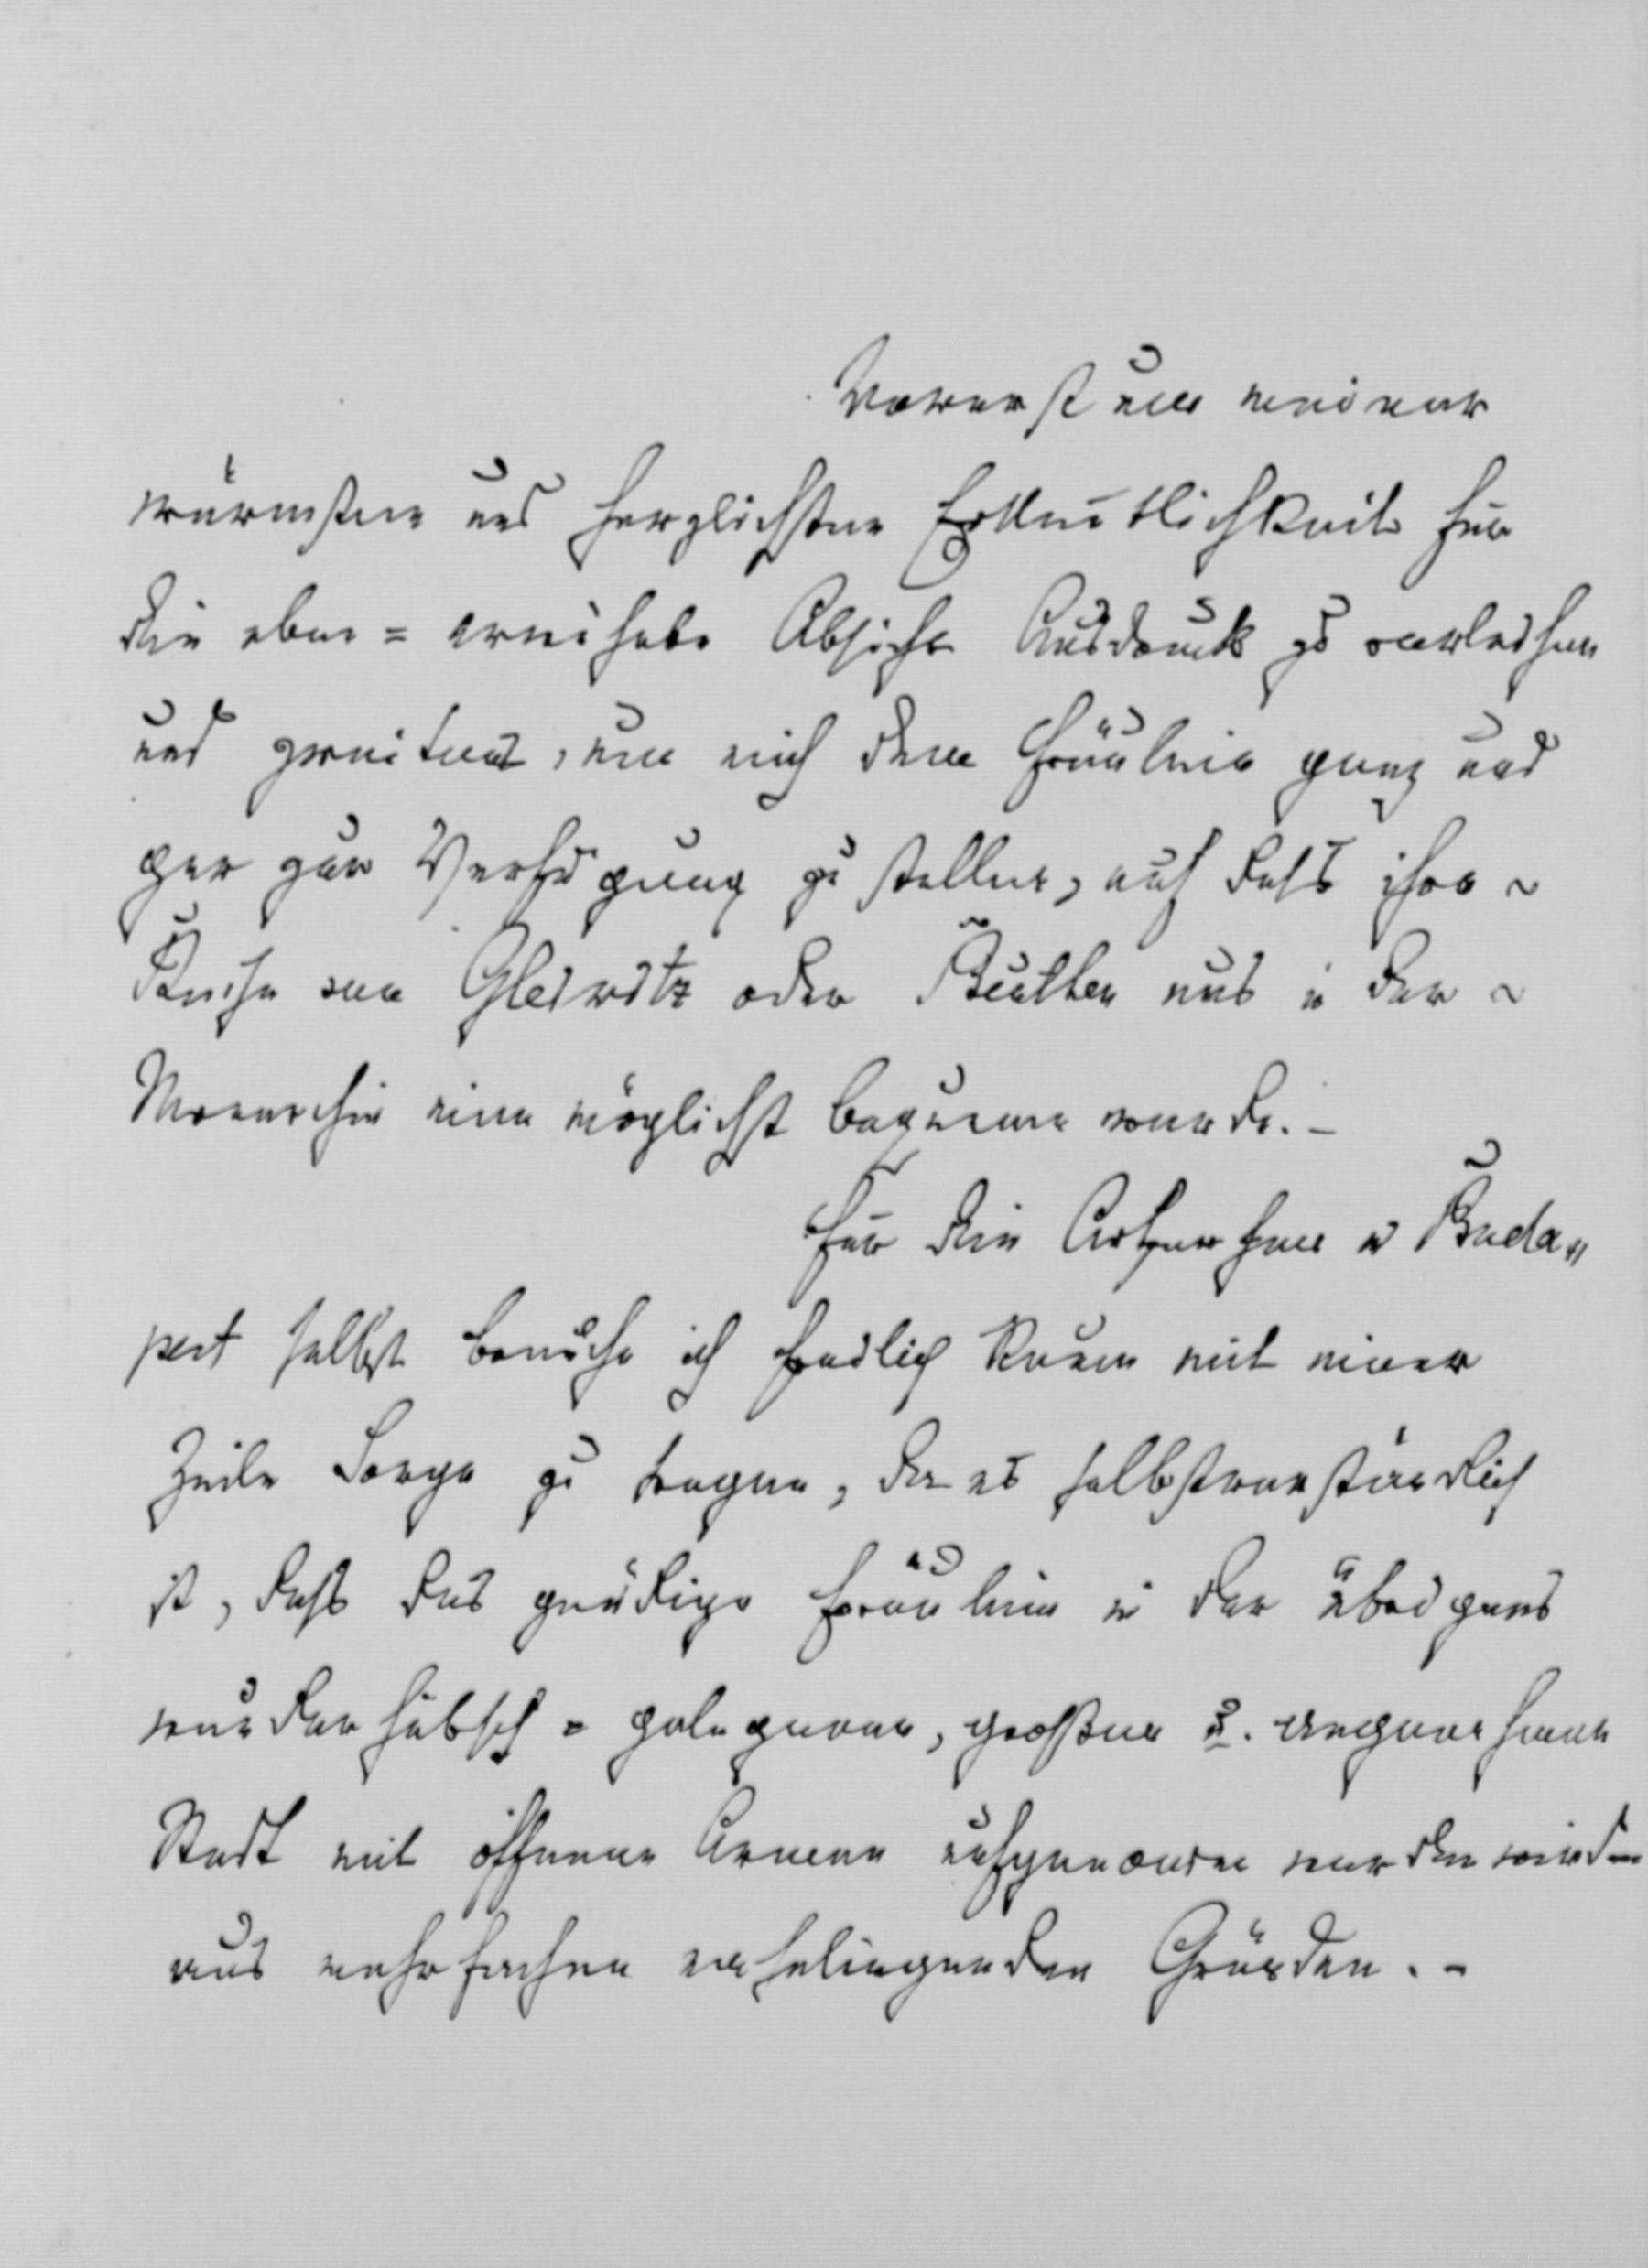 Vorerst um meiner
wärmsten und herzlichsten Erkenntlichkeit für
die eben = erwähnte Absicht Ausdruck zu verleihen
und zweitens, um mich dem Fräulein ganz und
gar zur Verfügung zu stellen, auf daß ihre ~
Reise von Gleiwitz oder Beuthen aus in der ~
Monarchie eine möglichst bequeme werde. –
Für die Aufnahme in Buda„
pest selbst brauche ich freilich kaum mit einer
Zeile Sorge zu tragen, da es selbstverständlich
ist, daß das gnädige Fräulein in der übrigens
wunderhübsch = gelegenen, großen u. angenehmen
Stadt mit offenen Armen aufgenommen werden wird –
aus mehrfachen naheliegenden Gründen. –